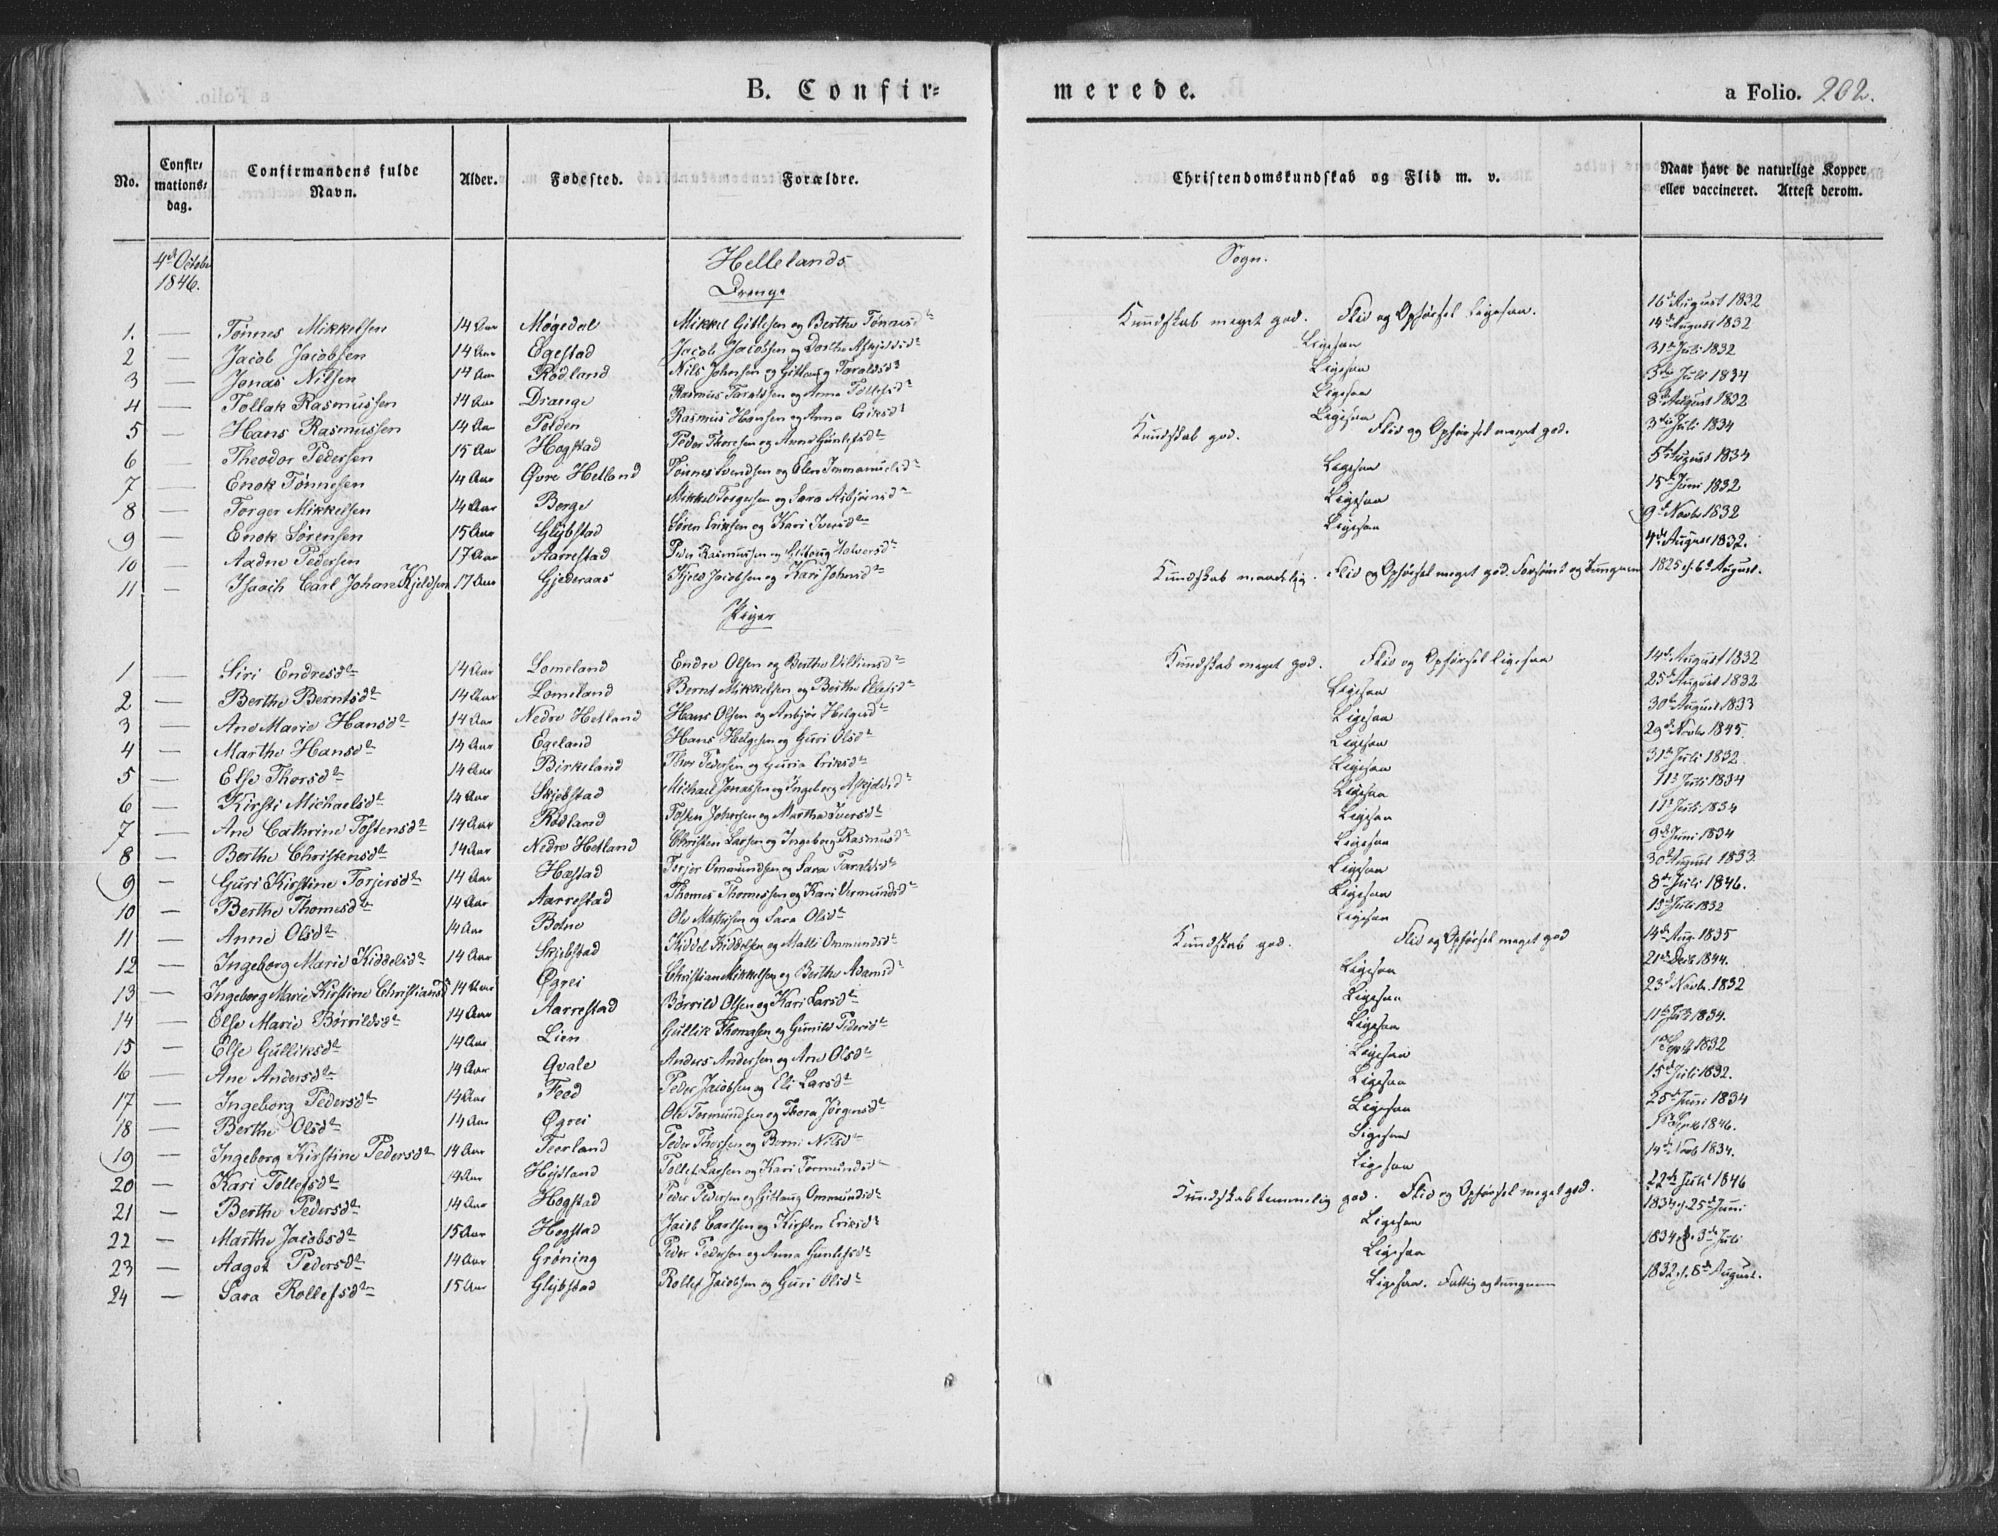 B. Confir=
merede.
a Folio. 202.
No.
Confir=
mations=
dag.
Confirmandens fulde
Navn.
Alder.
Fødested.
Forældre.
Christendomskundskab og Flid m. v.
Naar havt de naturlige Kopper
eller vaccineret. Attest derom.
4de Octobr
1846.
Hellelands
Sogn.
Drenge
1. — Tønnes Mikkelsen 14 Aar Møgedal Mikkel Gitlesen og Berthe Tønnesdr Kundskab meget god. Flid og Opførsel ligesaa. 16de August 1832
2 — Jacob Jacobsen 14 Aar Egestad Jacob Jacobsen og Dorthe Askjeldsdr Ligesaa 14de August 1832
3 — Jonas Nilsen 14 Aar Rødland Nils Johnsen og Gitlaug Taraldsdr Ligesaa 31te Juli 1832
4 — Tollak Rasmussen 14 Aar Drange Rasmus Taraldsen og Anna Tollefsdr Ligesaa 3die Juli 1834
5 — Hans Rasmussen 14 Aar Tolden Rasmus Hansen og Anna Eriksdr Ligesaa 8de August 1832
6 — Theodor Pedersen 15 Aar Hogstad Peder Thoresen og Anne Gunlefsdr Kundskab god. Flid og Opførsel meget god. 3die Juli 1834
7 — Enok Tønnesen 14 Aar Øvre Hetland Tønnes Svendsen og Elen Immanuelsdr Ligesaa 5te August 1834
8 — Torger Mikkelsen 14 Aar Berge Mikkel Torgersen og Sara Asbjørnsdr Ligesaa 15de Juni 1832
9 — Enok Sørensen 15 Aar Gljbstad Søren Eriksen og Kari Iversdr Ligesaa 9de Novbr 1832
10 — Aadne Pedersen 17 Aar Aarrestad Peder Rasmussen og Gitlaug Halvorsdr 4de August 1832.
11 — Isaach Carl Johan Kjeldsen 17 Aar Gjederaas Kjeld Jacobsen og Kari Johnsdr Kundskab maadelig. Flid og Opførsel meget god. Forsømt og tungnem 1825 d. 6te August.
Piger
1 — Siri Endresdr 14 Aar Lomeland Endre Olsen og Berthe Villumsdr Kundskab meget god. Flid og Opførsel ligesaa 14de August 1832
2 — Berthe Berntsdr 14 Aar Lomeland Bernt Mikkelsen og Berthe Ellefsdr Ligesaa 25de August 1832
3 — Ane Marie Hansdr 14 Aar Nedre Hetland Hans Olsen og Anbjør Helgesdr Ligesaa 30te August 1833
4 — Marthe Hansdr 14 Aar Egeland Hans Helgesen og Guri Olsdr Ligesaa 29de Novbr 1845.
5 — Else Thorsdr 14 Aar Birkeland Thor Pedersen og Guria Eriksdr Ligesaa 31te Juli 1832.
6 — Kirsti Michaelsdr 14 Aar Skjebstad Michael Jonassen og Ingeborg Askjeldsdr Ligesaa 11te Juli 1834
7 — Ane Cathrine Tostensdr 14 Aar Rødland Tosten Johnsen og Martha Iversdr Ligesaa 11te Juli 1834
8 — Berthe Christensdr 14 Aar Nedre Hetland Christen Larsen og Ingeborg Rasmusdr Ligesaa 9de Juni 1834
9 — Guri Kirstine Torjersdr 14 Aar Hæstad Torjer Ommundsen og Sara Taraldsdr Ligesaa 30te August 1833.
10 — Berthe Thomesdr 14 Aar Aarrestad Thomes Thomessen og Kari Vermundsdr Ligesaa 8de Juli 1846.
11 — Anne Olsdr 14 Aar Botne Ole Mathisen og Sara Olsdr Ligesaa 15de Juli 1832
12 — Ingeborg Marie Kiddelsdr 14 Aar Skjebstad Kiddel Kiddelsen og Malli Ommundsdr Kundskab god. Flid og Opførsel meget god 14de Aug. 1835
13 — Ingeborg Marie Kirstine Christiansdr 14 Aar Øgrei Christian Mikkelsen og Berthe Adamsdr Ligesaa 21de Decbr 1844.
14 — Else Marie Børrildsdr 14 Aar Aarrestad Børrild Olsen og Kari Larsdr Ligesaa 23de Novbr. 1832
15 — Else Gulliksdr 14 Aar Lien Gullik Thomasen og Gunild Pedersdr Ligesaa 11te Juli 1834.
16 — Ane Andersdr 14 Aar Qvale Anders Andersen og Ane Olsdr Ligesaa 1ste Septbr 1832
17 — Ingeborg Pedersdr 14 Aar Feed Peder Jacobsen og Eli Larsdr Ligesaa 15de Juli 1832.
18 — Berthe Olsdr 14 Aar Øgrei Ole Tormundsen og Thora Jørgensdr Ligesaa 25de Juni 1834
19 — Ingeborg Kirstine Pedersdr 14 Aar Teerland Peder Thorsen og Berni Nilsdr Ligesaa Septbr 1846.
20 — Kari Tollefsdr 14 Aar Hejdland Tollef Larsen og Kari Tormundsdr Ligesaa 14de Novbr 1834.
21 — Berthe Pedersdr 14 Aar Hogstad Peder Pedersen og Gitlaug Ommundsdr Kundskab temmelig god. Flid og Opførsel meget god. 22de Juli 1846
22 — Marthe Jacobsdr 15 Aar Hogstad Jacob Carlsen og Kirsten Eriksdr Ligesaa 1834 d. 25de Juni
23 — Aagot Pedersdr 14 Aar Grøning Peder Pedersen og Anna Gunlefsdr Ligesaa 1834 d. 3de Juli
24 — Sara Rollefsdr 15 Aar Gljbstad Rollef Jacobsen og Guri Olsdr Ligesaa. Fattig og tungnem 1832 d. 8de August.